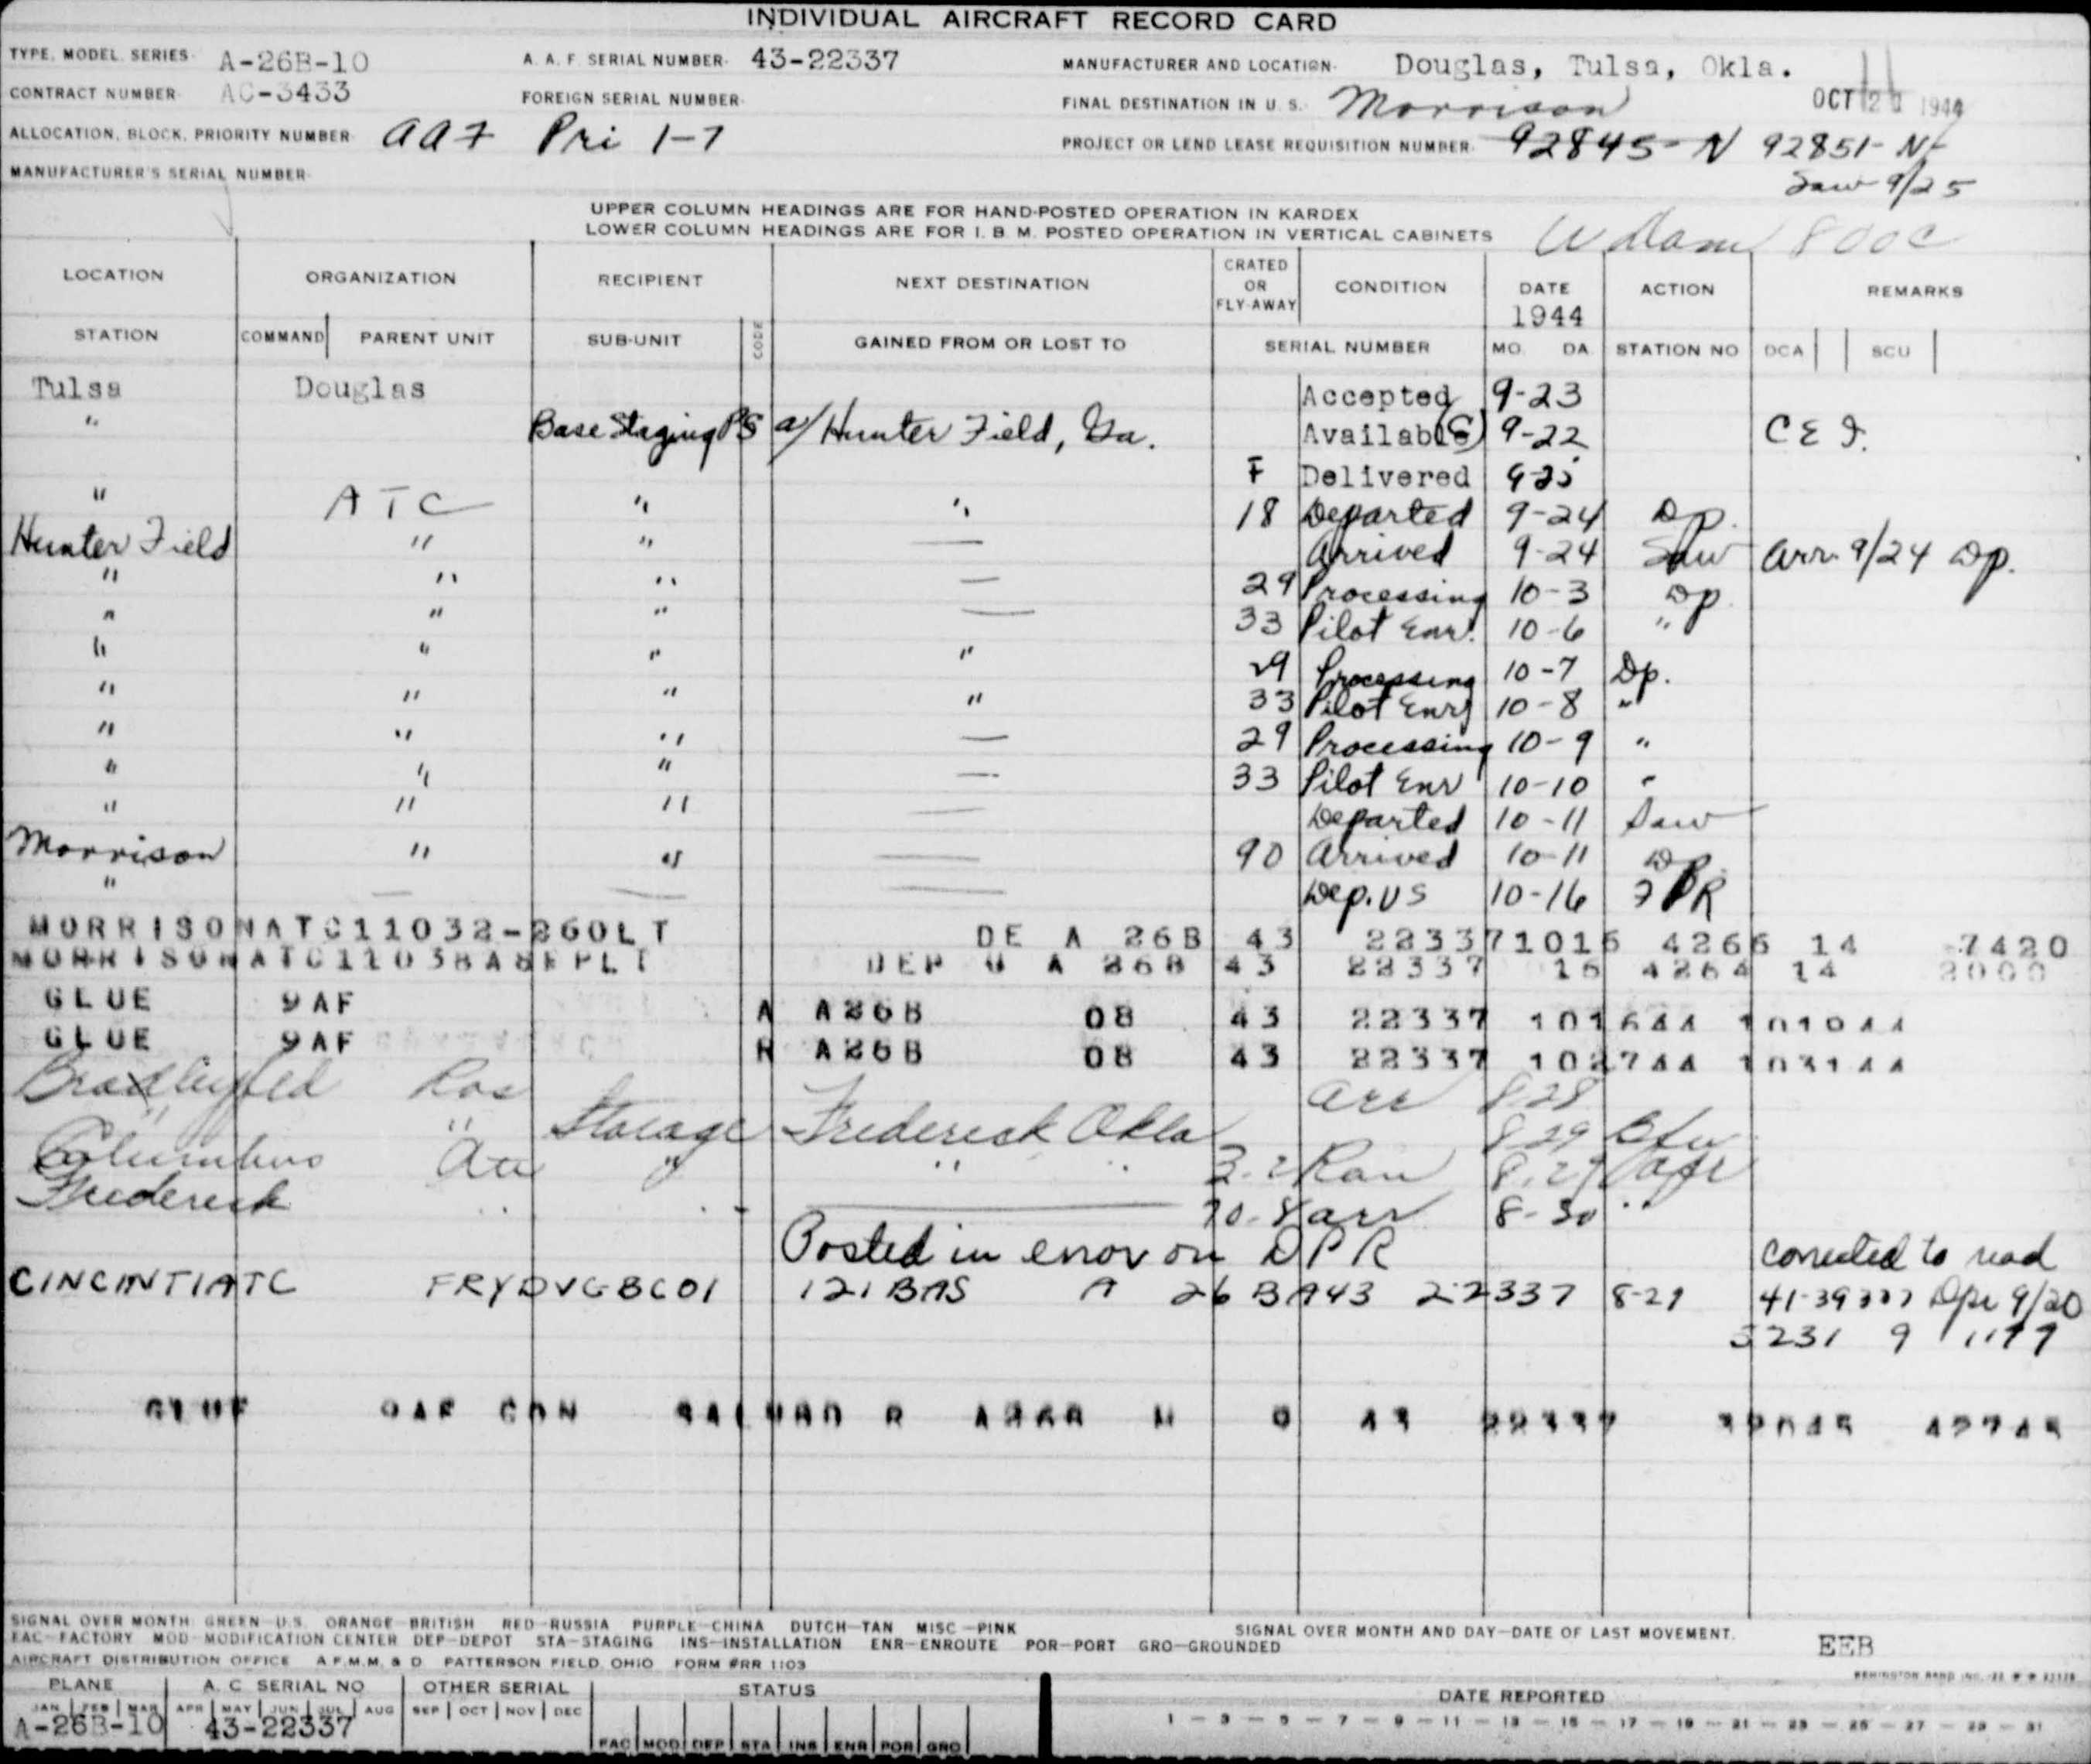 INDIVIDUAL AIRCRAFT RECORD CARD
TYPE, MODEL, SERIES A-26B-10 A. A. F. SERIAL NUMBER 43-22337 MANUFACTURER AND LOCATION Douglas, Tulsa, Okla.
CONTRACT NUMBER AC-3433 FOREIGN SERIAL NUMBER FINAL DESTINATION IN U. S. Morrison OCT 1944
ALLOCATION, BLOCK, PRIORITY NUMBER AAF Pri 1-7 PROJECT OR LEND LEASE REQUISITION NUMBER 92845-N 92851-N
MANUFACTURER'S SERIAL NUMBER Saw 9/25
UPPER COLUMN HEADINGS ARE FOR HAND-POSTED OPERATION IN KARDEX
LOWER COLUMN HEADINGS ARE FOR I. B. M. POSTED OPERATION IN VERTICAL CABINETS
LOCATION ORGANIZATION RECIPIENT NEXT DESTINATION CRATED OR FLY-AWAY CONDITION DATE 1944 ACTION REMARKS
STATION COMMAND PARENT UNIT SUB-UNIT CODE GAINED FROM OR LOST TO SERIAL NUMBER MO. DA. STATION NO DCA SCU
Tulsa Douglas Accepted 9-23
" Base Staging PS a/ Hunter Field, Ga. Available (S) 9-22 C E I.
F Delivered 9-25
" ATC " " 18 Departed 9-24 Dp.
Hunter Field " " — Arrived 9-24 Saw Arr 9/24 Dp.
" " " — 29 Processing 10-3 Dp
" " " — 33 Pilot Enr. 10-6 "
" " " " 29 Processing 10-7 Dp.
" " " " 33 Pilot Enr 10-8 "
" " " — 29 Processing 10-9 "
" " " — 33 Pilot Enr 10-10 "
" " " — Departed 10-11 Saw
Morrison " " — 90 Arrived 10-11 DP
" — — — Dep. US 10-16 FPR
MORRISONATC11032-260LT DE A 26B 43 223371016 4266 14 7420
MORRISONATC11038A8FPLT DEP U A 26B 43 22337 16 4264 14 2000
GLUE 9AF A A26B 08 43 22337 101644 101944
GLUE 9AF R A26B 08 43 22337 102744 103144
Bradleyfld Arr 8-28
" " Storage Frederick Okla 8-29
Columbus " " "
Frederick — 70-8 arr 8-30 "
Posted in error on DPR corrected to read
CINCINTIATC FRYDVGBC01 121BAS A 26 BA43 22337 8-29 41-39337 Dpr 9/20
3231 9 1179
GLUE 9AF CON SALVAD R A26B 43 22337 42745
SIGNAL OVER MONTH GREEN-U.S. ORANGE-BRITISH RED-RUSSIA PURPLE-CHINA DUTCH-TAN MISC.-PINK
FAC-FACTORY MOD-MODIFICATION CENTER DEP-DEPOT STA-STAGING INS-INSTALLATION ENR-ENROUTE POR-PORT GRO-GROUNDED SIGNAL OVER MONTH AND DAY-DATE OF LAST MOVEMENT.
AIRCRAFT DISTRIBUTION OFFICE A.F.M.M. & D. PATTERSON FIELD, OHIO FORM #RR 1103 EEB
PLANE A. C SERIAL NO OTHER SERIAL STATUS DATE REPORTED
JAN FEB MAR APR MAY JUN JUL AUG SEP OCT NOV DEC 1 — 3 — 5 — 7 — 9 — 11 — 13 — 15 — 17 — 19 — 21 — 23 — 25 — 27 — 29 — 31
A-26B-10 43-22337
FAC MOD DEP STA INS ENR POR GRO